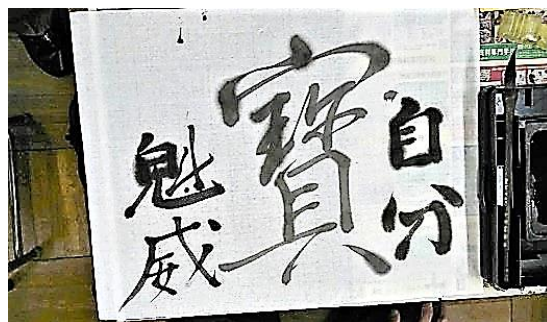 自分
寳
魁威